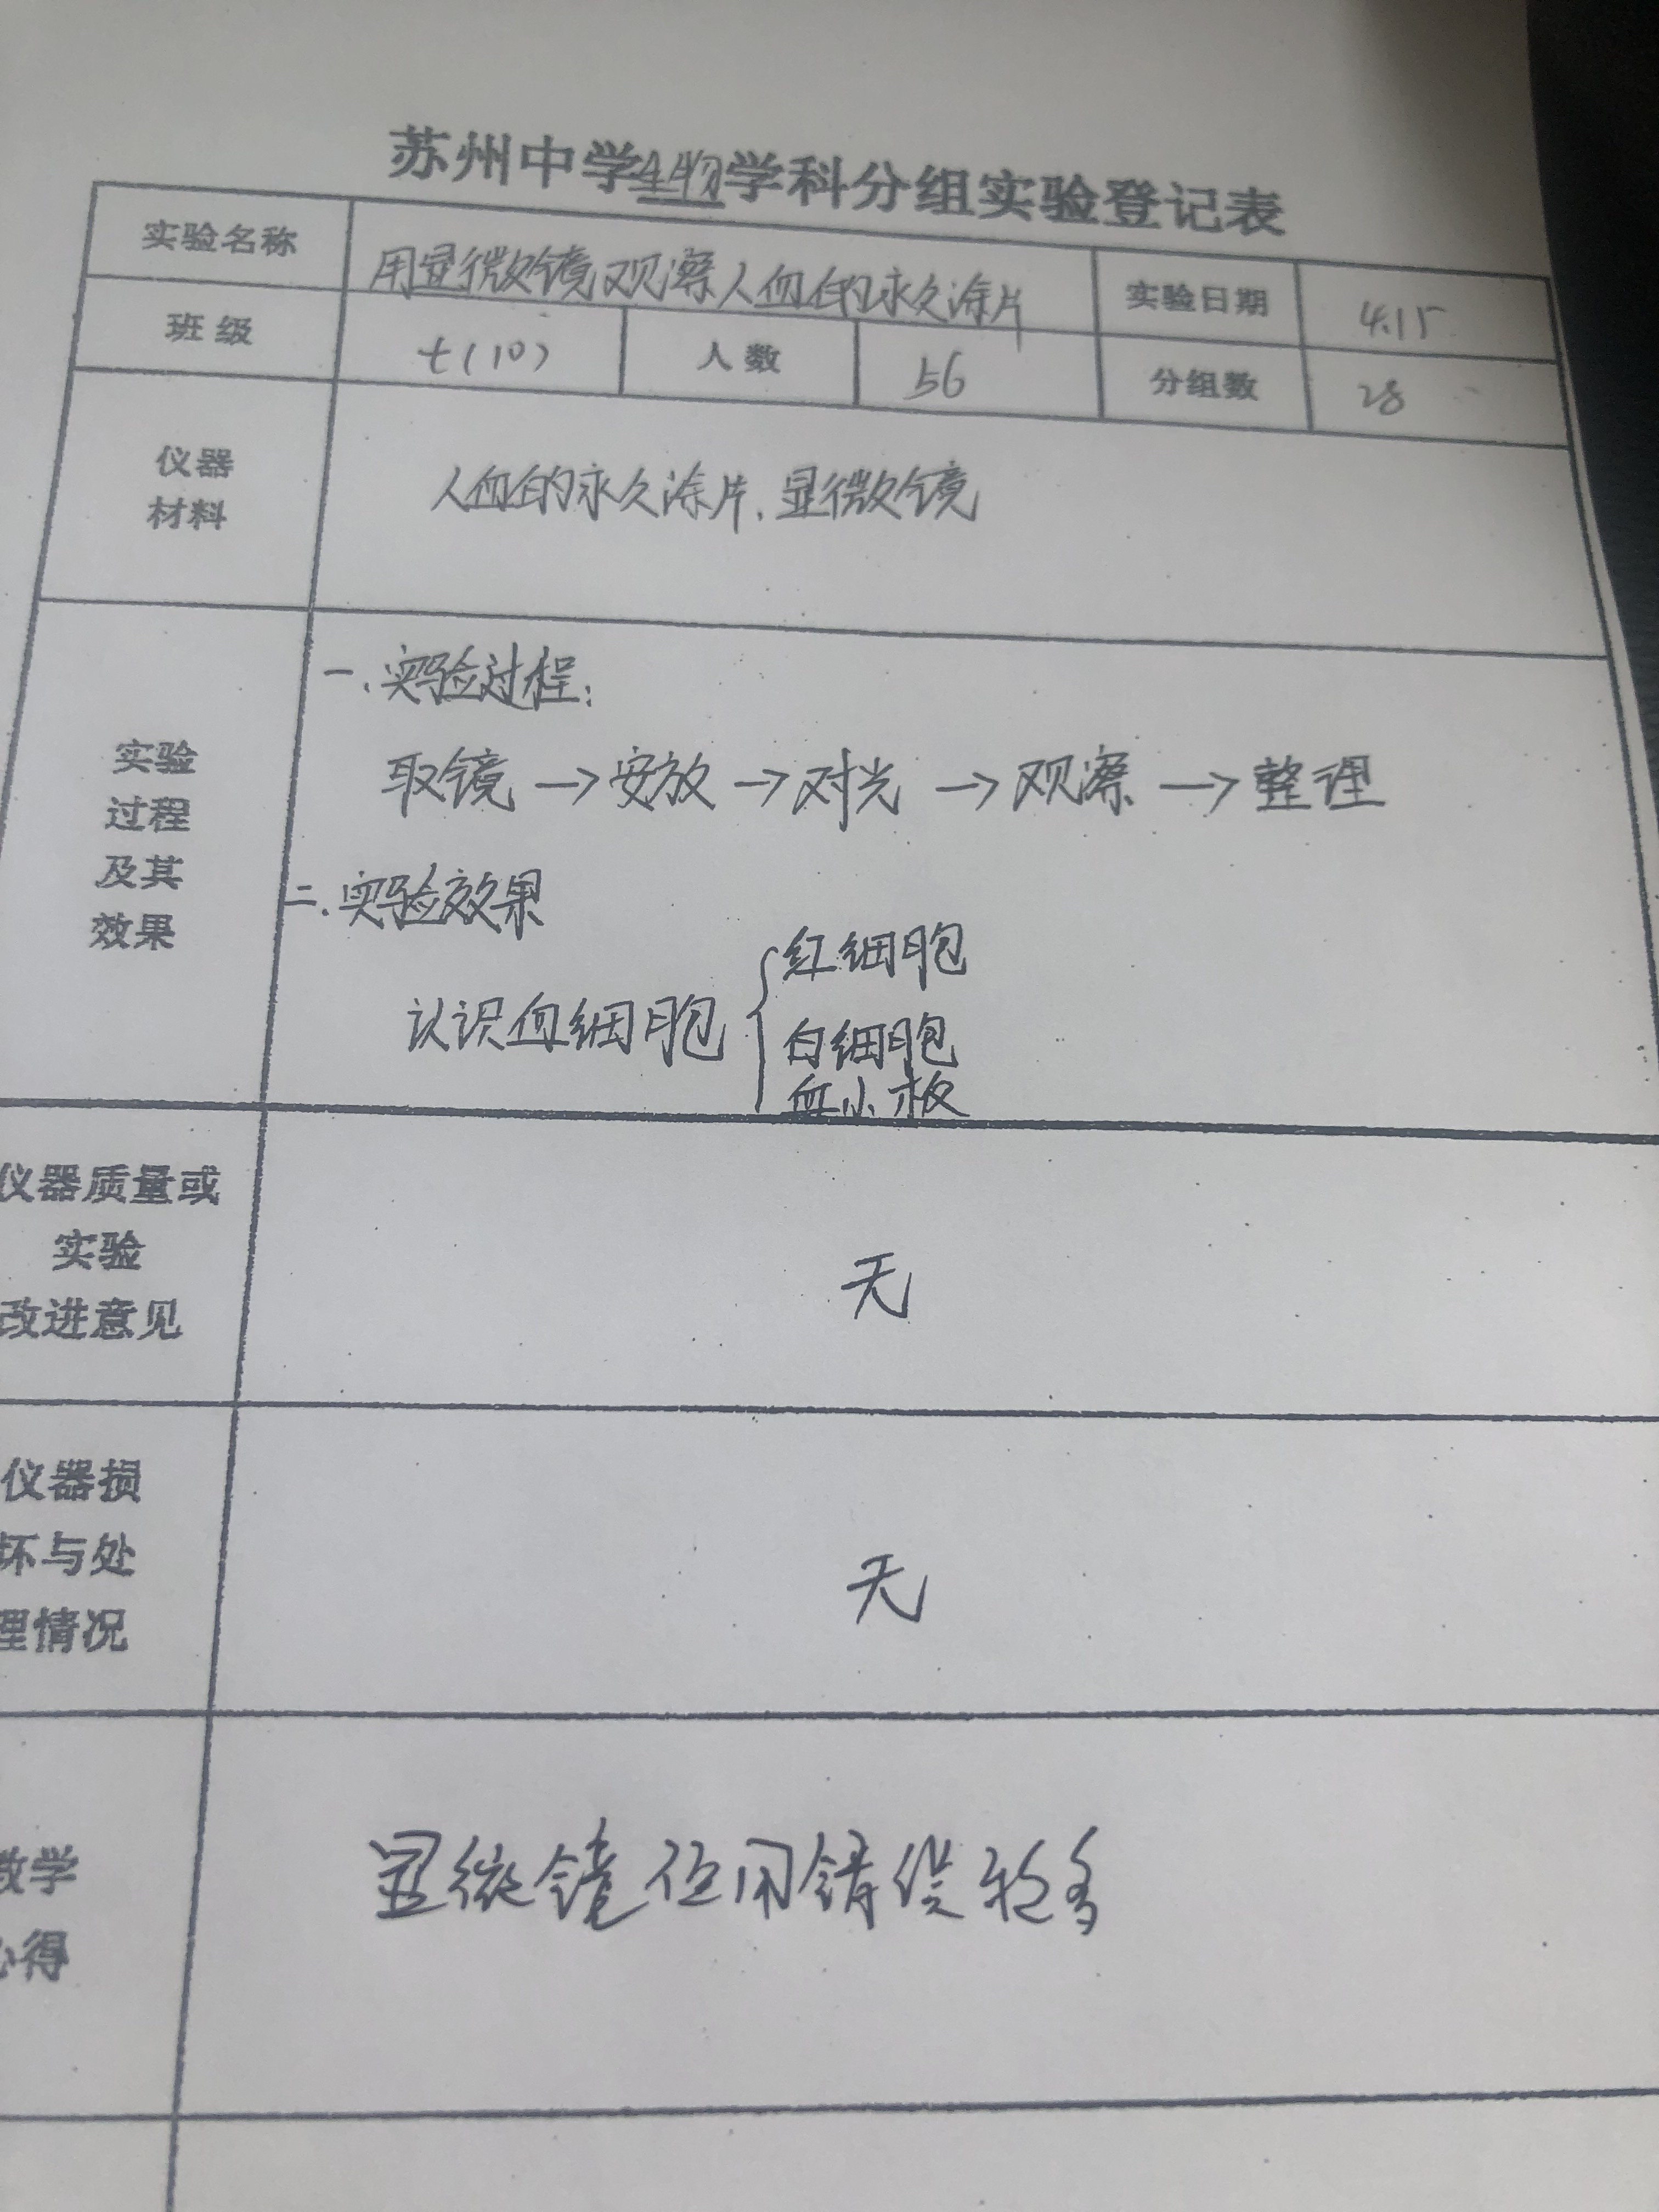 苏州中学生物学科分组实验登记表
实验名称 用显微镜观察人血的永久涂片 实验日期 4.15
班级 七(10) 人数 56 分组数 28
仪器
材料
人血的永久涂片、显微镜
实验
过程
及其
效果
一、实验过程:
取镜→安放→对光→观察→整理
二、实验效果
认识血细胞
红细胞
白细胞
血小板
仪器质量或
实验
改进意见
无
仪器损
坏与处
理情况
无
教学
心得
显微镜使用错误较多